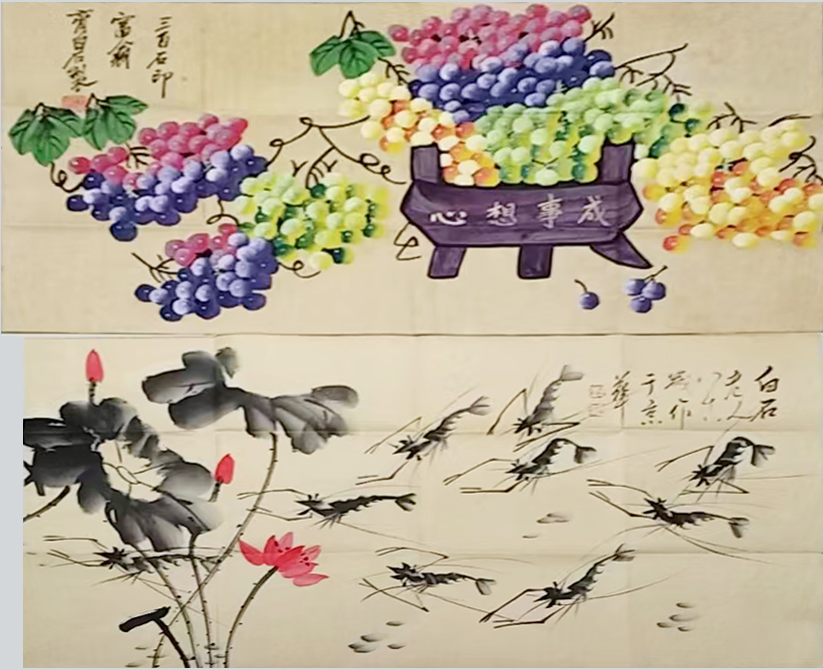 三百石印
富翁
齊白石製
心想事成
白石
老人
作
于京
華